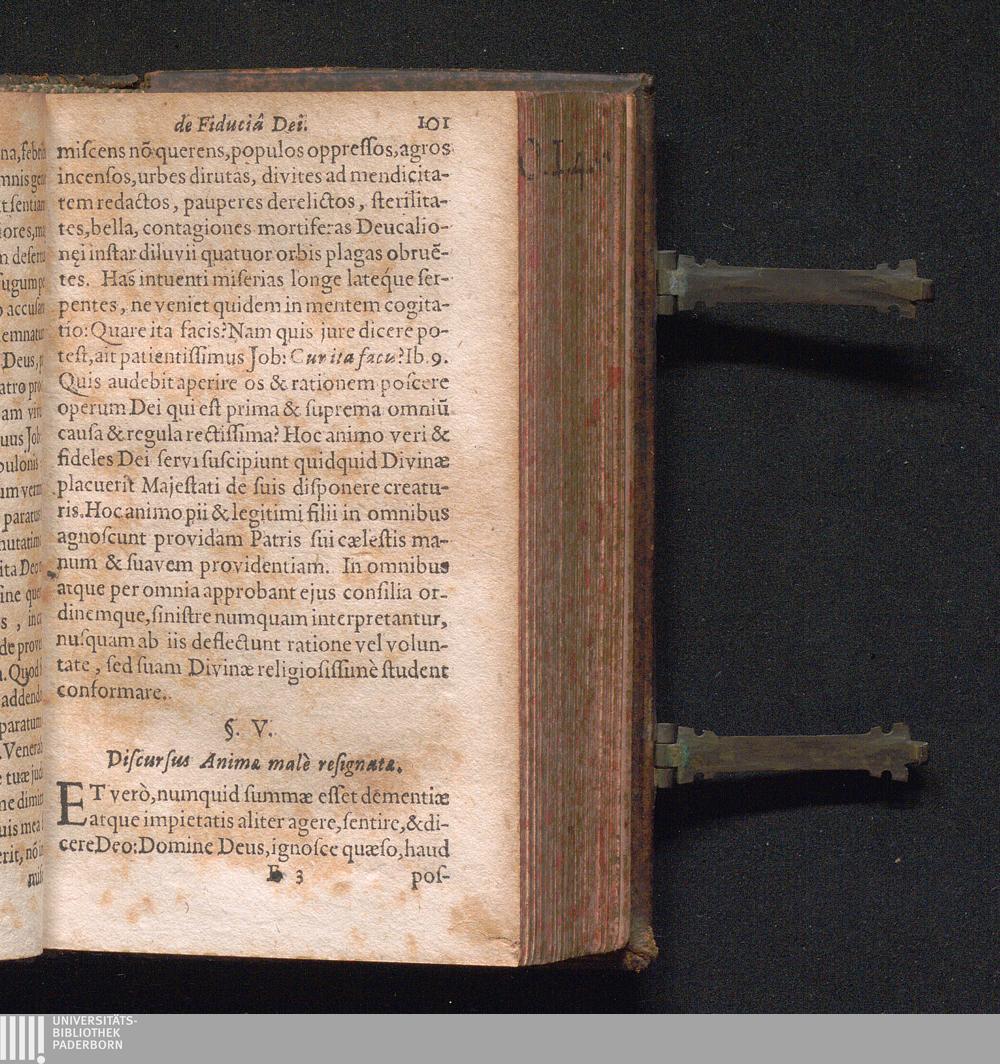 de Fiduciâ Dei. 101
miſcens nõ querens, populos oppreſſos, agros
incenſos, urbes dirutas, divites ad mendicita-
tem redactos, pauperes derelictos, ſterilita-
tes, bella, contagiones mortiferas Deucalio-
nęi inſtar diluvii quatuor orbis plagas obruẽ-
tes. Has intuenti miſerias longe lateq́ue ſer-
pentes, ne veniet quidem in mentem cogita-
tio: Quare ita facis? Nam quis jure dicere po-
teſt, ait patientiſſimus Job: Cur ita facis? Ib. 9.
Quis audebit aperire os & rationem poſcere
operum Dei qui eſt prima & ſuprema omniũ
cauſa & regula rectiſſima? Hoc animo veri &
fideles Dei ſervi ſuſcipiunt quidquid Divinæ
placuerit Majeſtati de ſuis diſponere creatu-
ris. Hoc animo pii & legitimi filii in omnibus
agnoſcunt providam Patris ſui cæleſtis ma-
num & ſuavem providentiam. In omnibus
atque per omnia approbant ejus conſilia or-
dinemque, ſiniſtre numquam interpretantur,
nuſquam ab iis deflectunt ratione vel volun-
tate, ſed ſuam Divinæ religioſiſſimè ſtudent
conformare.
§. V.
Diſcurſus Animæ malè reſignatæ.
ET verò, numquid ſummæ eſſet dementiæ
atque impietatis aliter agere, ſentire, & di-
cere Deo: Domine Deus, ignoſce quæſo, haud
E 3 poſ-
UNIVERSITÄTS-
BIBLIOTHEK
PADERBORN